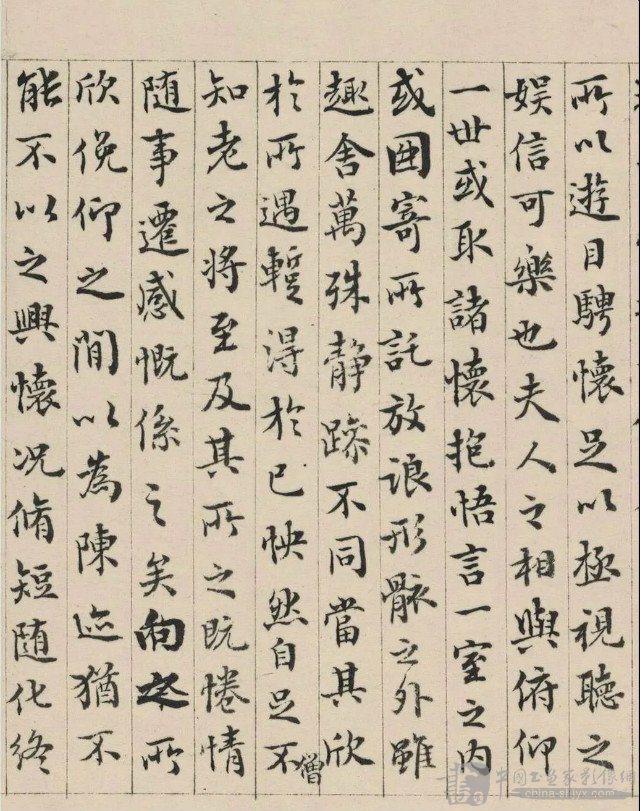 所以遊目騁懷足以極視聽之
娛信可樂也夫人之相與俯仰
一世或取諸懷抱悟言一室之内
或因寄所託放浪形骸之外雖
趣舍萬殊静躁不同當其欣
於所遇蹔得於己怏然自足不
僧
知老之將至及其所之既惓情
随事遷感慨係之矣向之所
欣俛仰之閒以為陳迹猶不
能不以之興懷况脩短随化終